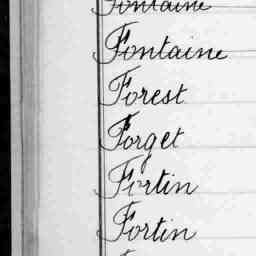 Fontaine
Fontaine
Forest
Forget
Fortin
Fortin